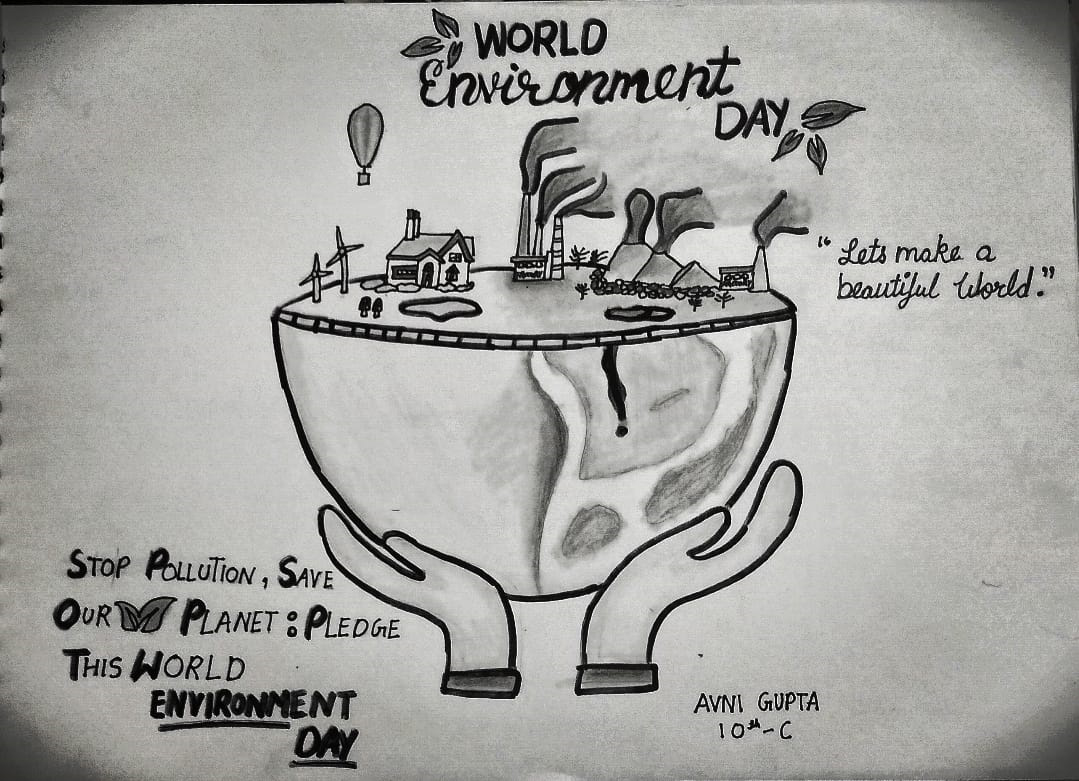 WORLD
Environment
DAY
"Lets make a
beautiful World."
STOP POLLUTION, SAVE
OUR PLANET : PLEDGE
THIS WORLD
ENVIRONMENT
DAY
AVNI GUPTA
10th-C